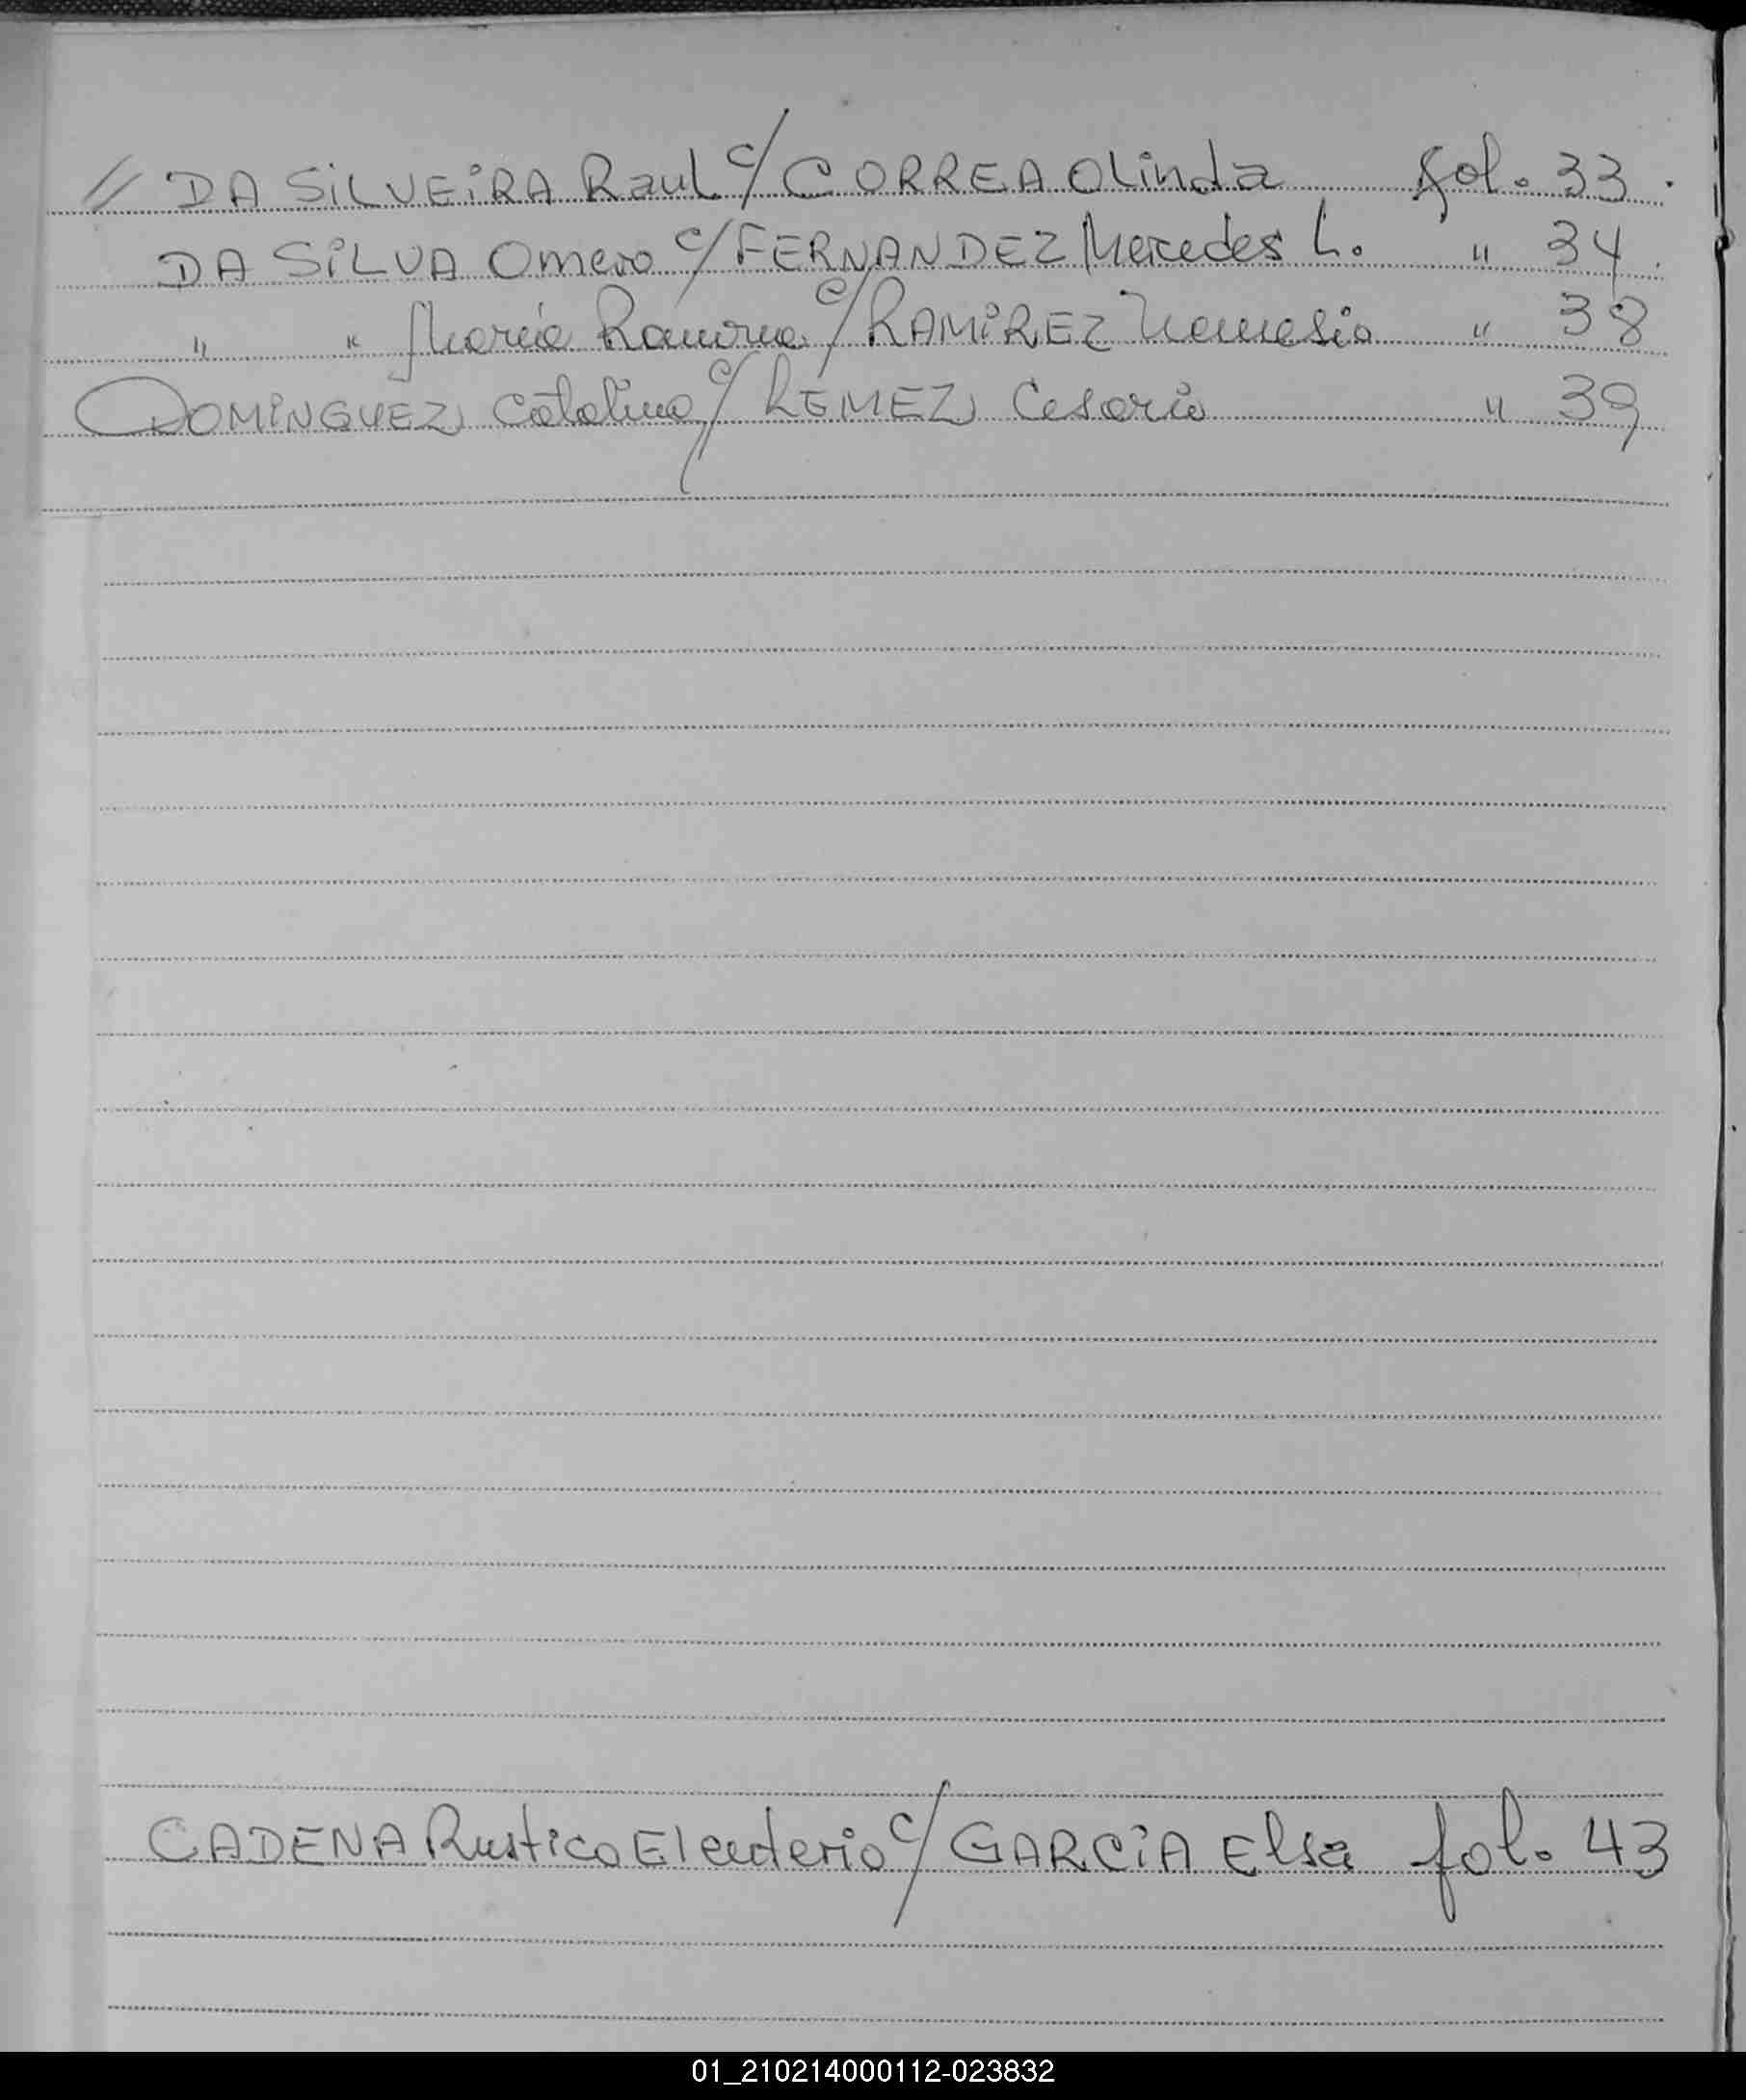 // DA SiLVEiRA Raul c/ CORREA Olinda fol. 33.
DA SiLVA Omero c/ FERNANDEZ Mercedes L. " 34.
" " María Ramona c/ RAMiREZ Nemesio " 38
DOMiNGUEZ Catalina c/ REMEZ Cesario " 39
CADENA Rustico Eleuterio c/ GARCiA Elsa fol. 43
01_210214000112-023832